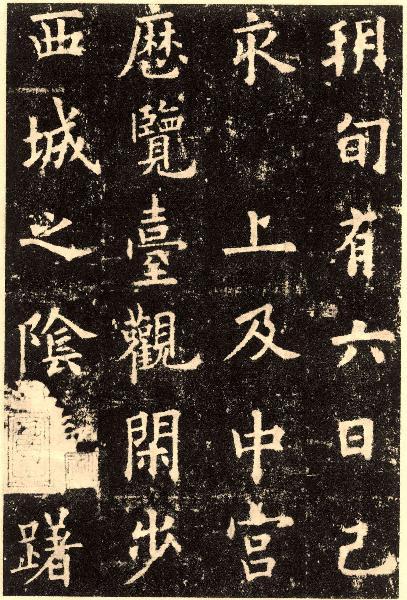 朔旬有六日己
亥上及中宫
歴覽臺觀閑步
西城之陰躇